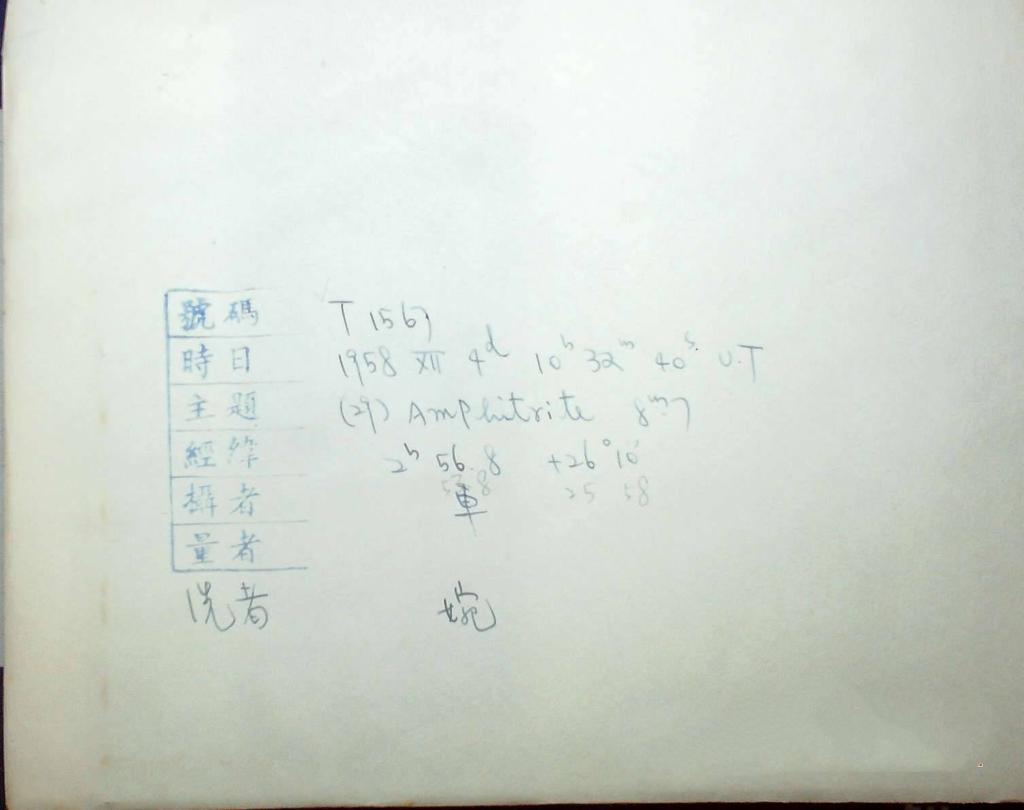 號碼 T 1567
時日 1958 XII 4d 10h 32m 40s U.T
主題 (29) Amphitrite 8m.7
經緯 2h 56.8 +26° 10'
53 8 25 58
攝者 車
量者
洗者 婉